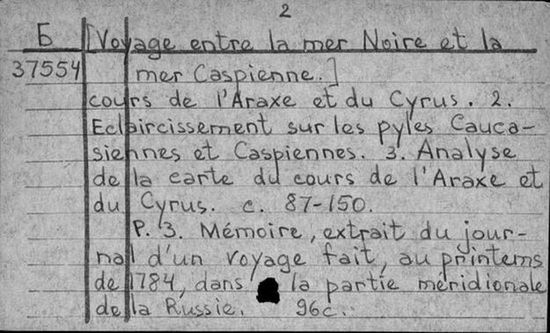 2
Б [Voyage entre la mer Noire et la
37554 mer Caspienne.]
cours de l'Araxe et du Cyrus. 2.
Eclaircissement sur les pyles Cauca-
siennes et Caspiennes. 3. Analyse
de la carte du cours de l'Araxe et
du Cyrus. c. 87-150.
P. 3. Mémoire, extrait du jour-
nal d'un voyage fait, au printems
de 1784, dans la partie méridionale
de la Russie. 96c.